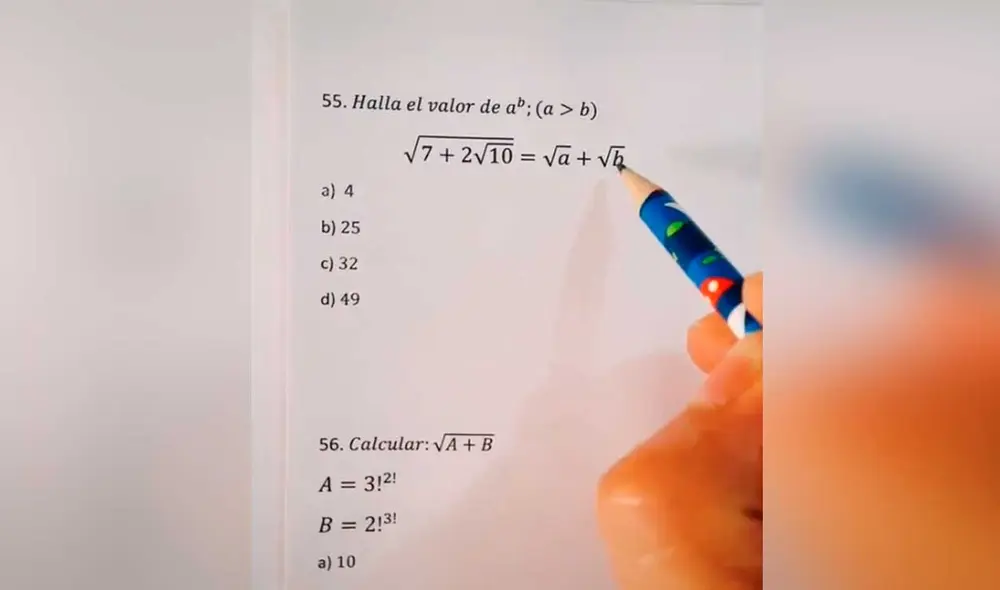 55. Halla el valor de aᵇ; (a > b)
√(7 + 2√10) = √a + √b
a) 4
b) 25
c) 32
d) 49
56. Calcular: √(A + B)
A = 3!²!
B = 2!³!
a) 10